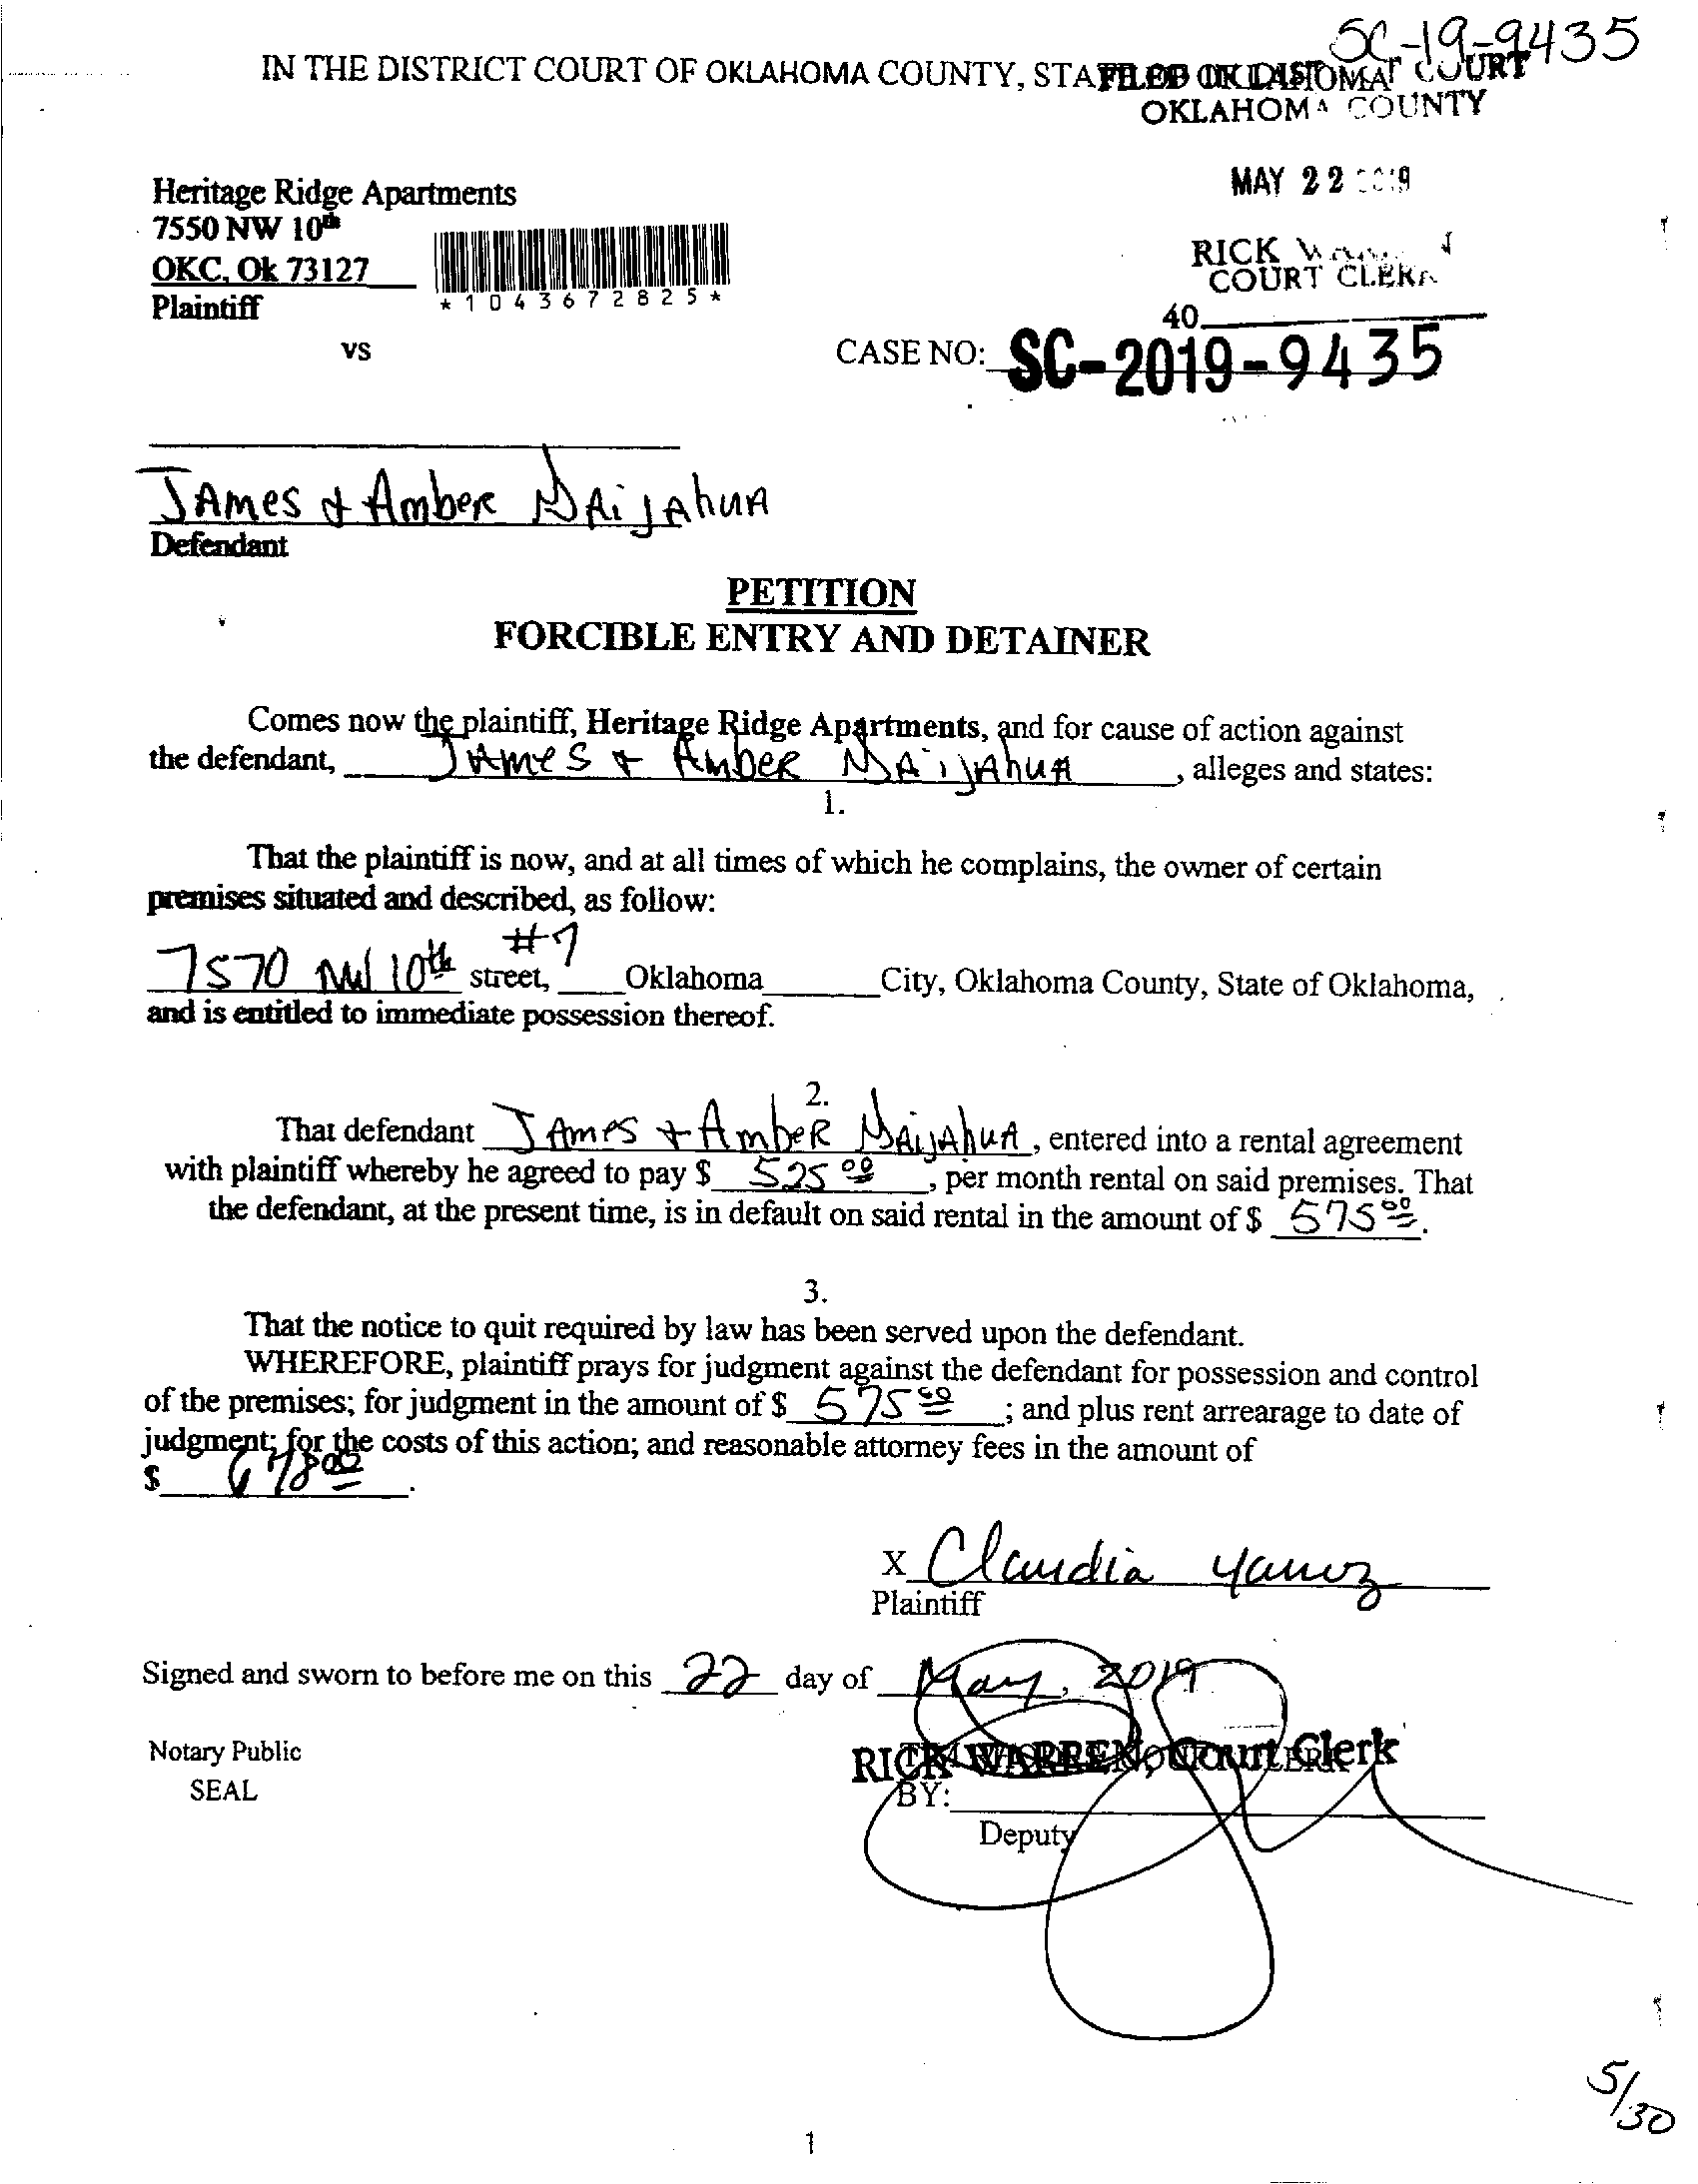 SC-19-9435
IN THE DISTRICT COURT OF OKLAHOMA COUNTY, STATE OF OKLAHOMA
FILED IN DISTRICT COURT
OKLAHOMA COUNTY
MAY 22 2019
RICK
COURT CLERK
40
Heritage Ridge Apartments
7550 NW 10th
OKC, Ok 73127
Plaintiff
*1043672825*
vs
CASE NO: SC-2019-9435
JAmes & Amber NAiJAhuA
Defendant
PETITION
FORCIBLE ENTRY AND DETAINER
Comes now the plaintiff, Heritage Ridge Apartments, and for cause of action against
the defendant, JAmes + Amber NAiJAhuA, alleges and states:
1.
That the plaintiff is now, and at all times of which he complains, the owner of certain
premises situated and described, as follow:
7570 NW 10th street, #7 Oklahoma City, Oklahoma County, State of Oklahoma,
and is entitled to immediate possession thereof.
2.
That defendant JAmes + AmbeR NAiJAhuA, entered into a rental agreement
with plaintiff whereby he agreed to pay $ 525 00, per month rental on said premises. That
the defendant, at the present time, is in default on said rental in the amount of $ 575 00.
3.
That the notice to quit required by law has been served upon the defendant.
WHEREFORE, plaintiff prays for judgment against the defendant for possession and control
of the premises; for judgment in the amount of $ 575 00; and plus rent arrearage to date of
judgment; for the costs of this action; and reasonable attorney fees in the amount of
$ 678 00.
X Claudia
Plaintiff
Signed and sworn to before me on this 22 day of May, 2019
Notary Public
SEAL
RICK WARREN, Court Clerk
BY:
Deputy
5/30
1